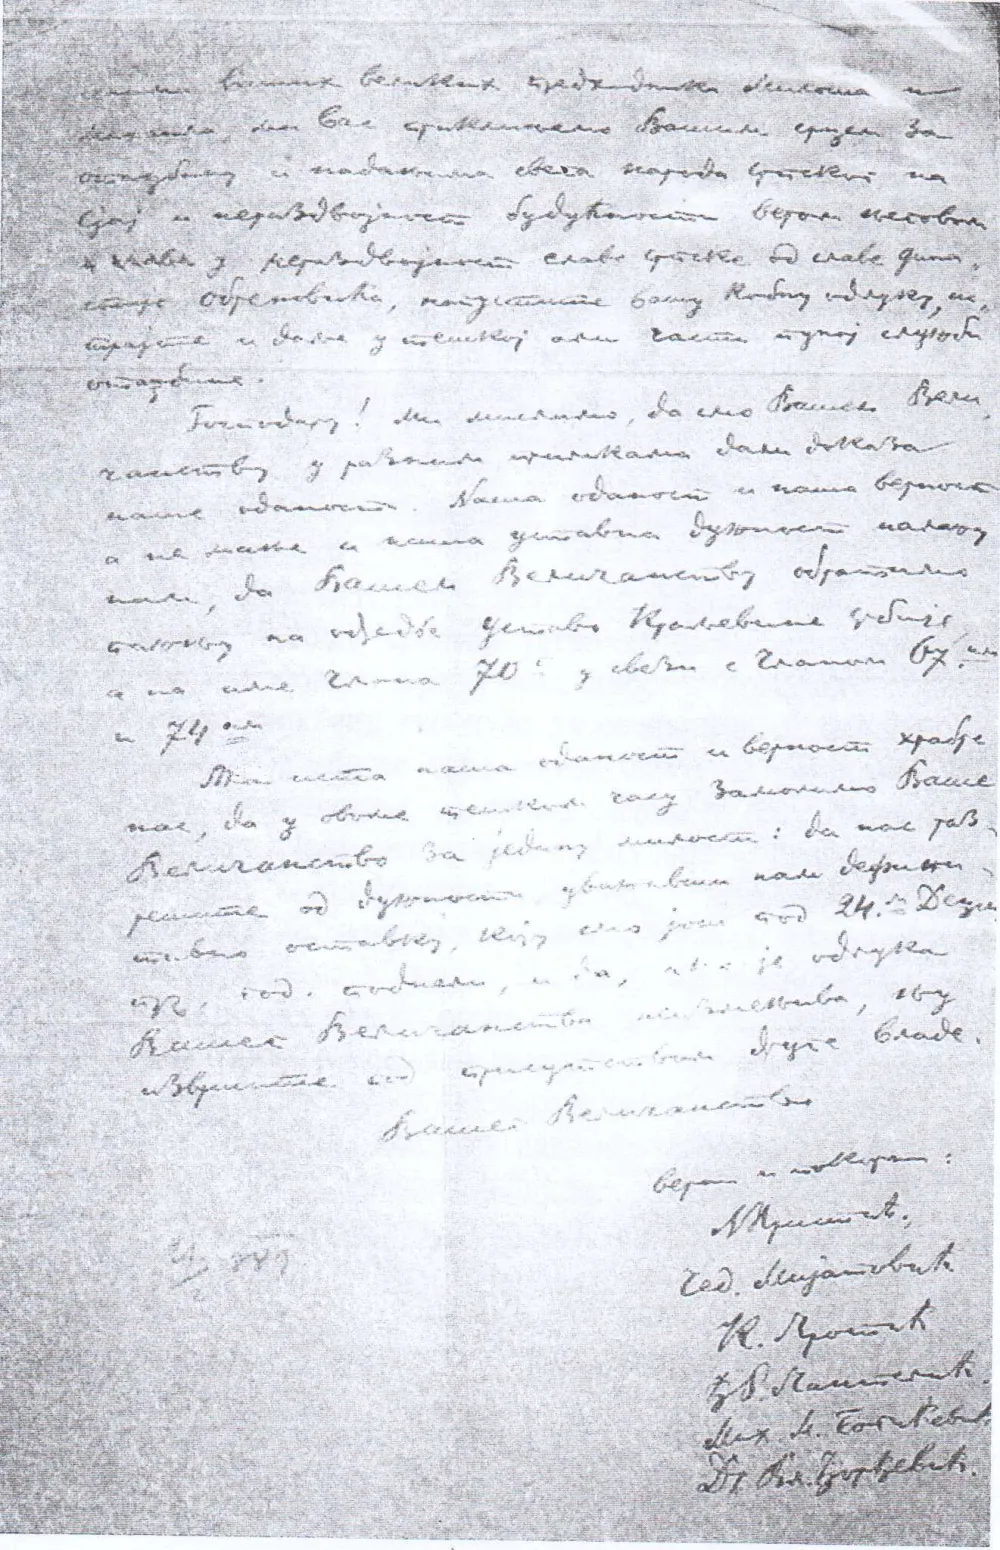 Ваших великих предходника Милоша и
Михаила, ми Вас преклињемо Вашим срцем за
отаџбину и надањима свега народа српског на
сјај и нераздвојност будућности вером његовом
у нераздвојност славе српске од славе дина-
стије Обреновића, напустите Вашу кобну одлуку, ис-
трајте и даље у тешкој али части пуној служби
отаџбине.
Господару! Ми мислимо, да смо Вашем Вели-
чанству у разним приликама дали доказа
наше оданости. Наша оданост и наша верност
а не мање и наша уставна дужност налажу
нам, да Вашем Величанству обратимо
пажњу на одредбе Устава Краљевине Србије,
а на име члана 70 у свези с чланом 67.им
и 74 им
Та иста наша оданост и верност храбре
нас, да у овоме тешком часу замолимо Ваше
Величанство за једину милост: да нас раз-
решите од дужности, уваживши нам дефини-
тивно оставку, коју смо још под 24. Децем
пр. год. поднели, и да, ако је одлука
Вашег Величанства неизмењива, њу
извршите под присуством друге владе.
Вашег Величанства
верни и покорни:
Н Христић,
Чед. Мијатовић
К. Протић
Ђ. Пантелић.
Мих. М. Богићевић
Др Вл. Ђорђевић.